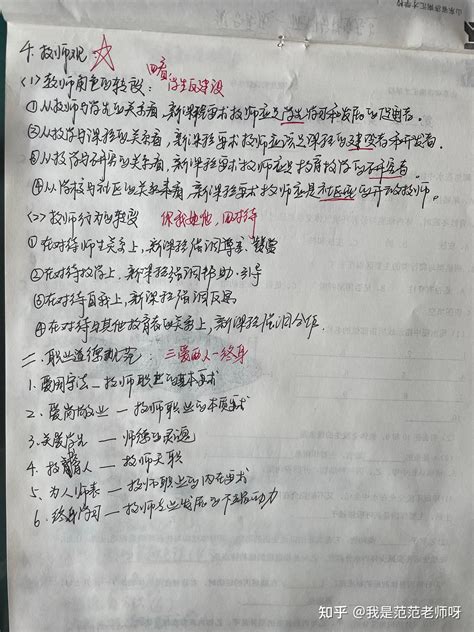 山东省济南汇才学校
4. 教师观 ☆
(1) 教师角色的转变： 四看 学生反建设
①从教师与学生的关系看，新课程要求教师应是学生学习和发展的促进者。
②从教学与课程的关系看，新课程要求教师应该是课程的建设者和开发者。
③从教学与研究的关系看，新课程要求教师应是教育教学的研究者。
④从学校与社区的关系来看，新课程要求教师应是社区型的开放教师。
(2) 教师行为的转变 你我他，四对待
①在对待师生关系上，新课程强调尊重、赞赏
②在对待教学上，新课程强调帮助、引导
③在对待自我上，新课程强调反思
④在对待与其他教育者的关系上，新课程强调合作。
二、职业道德规范： 三爱两人一终身
1. 爱国守法 — 教师职业的基本要求
2. 爱岗敬业 — 教师职业的本质要求
3. 关爱学生 — 师德的灵魂
4. 教书育人 — 教师天职
5. 为人师表 — 教师职业的内在要求
6. 终身学习 — 教师专业发展的不竭动力
知乎 @我是范范老师呀